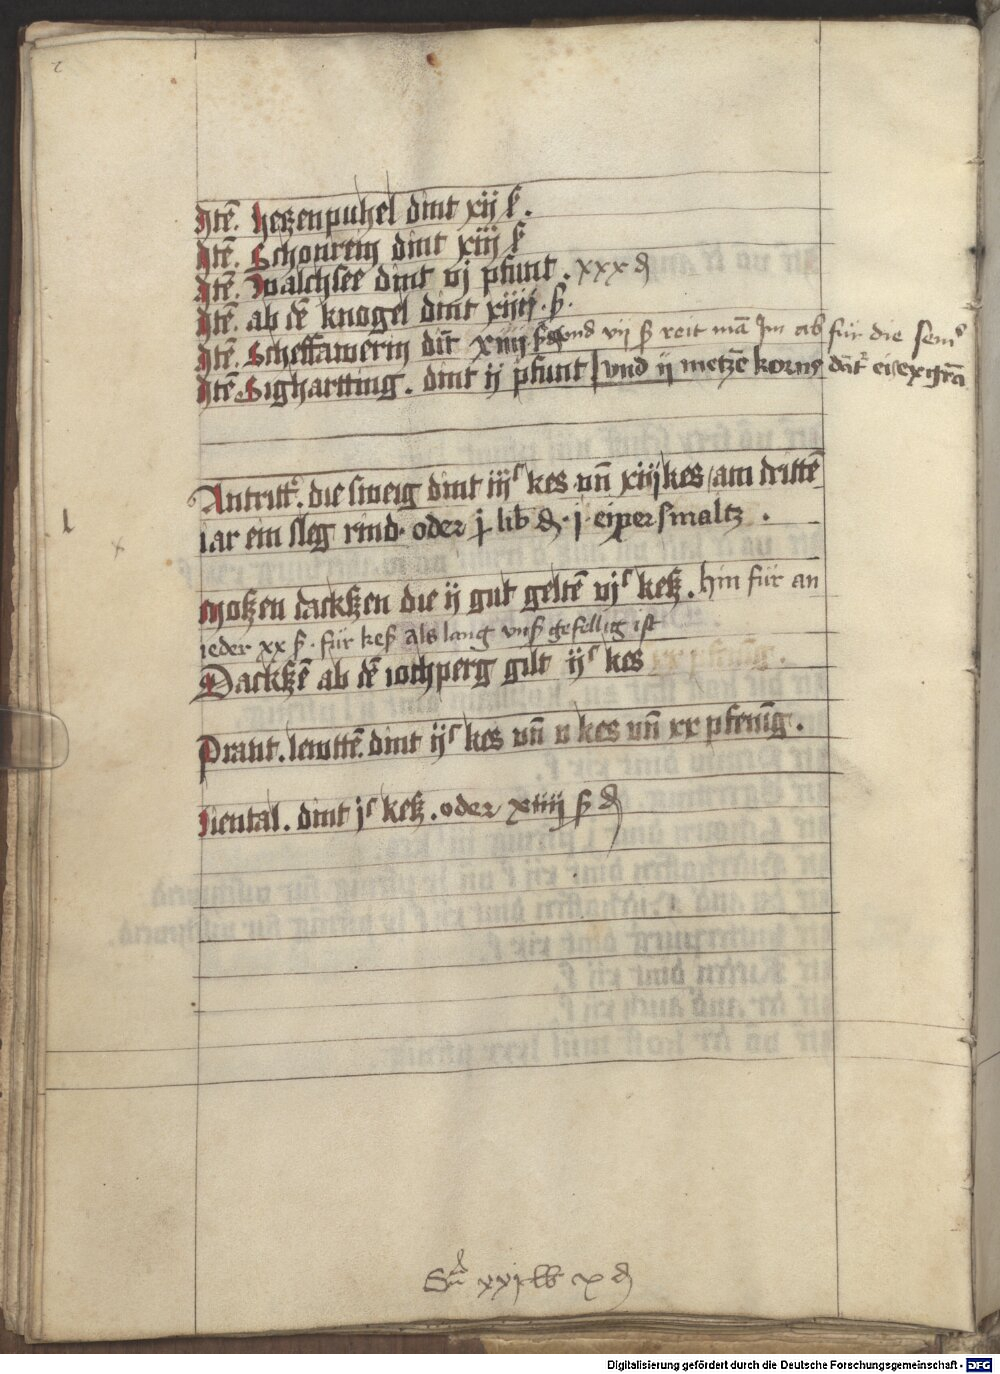 Itē. hetzenpuhel dint xij ß.
Itē. Schonrein dint xiij ß
Itē. Walchsee dint vj pfunt. xxx ₰
Itē. ab dē knogel dint xiiij. ß.
Itē. Scheffawerin dīt xiiij ß vnd vij ß reit mā Im ab für die
Itē Sighartting. dint ij pfunt vnd ij metzē korns
Antritt. die sweig dint iijᶜ kes vn̄ xiij kes am drittē
iar ein sleg rind. oder j lib ₰. j. smaltz.
Mosen dacksen die ij gut geltē vjᶜ kesz. hin für an
ieder xx ß. für keß als lang vnß gefellig ist
Dacksē ab dē iochperg gilt ijᶜ kes xx pfenīg.
Prant. lewttē. dint ijᶜ kes vn̄ v kes vn̄ xx pfenīg.
dint jᶜ kesz. oder xiiij ß ₰
Sūᵃ xxj lb x ₰
Digitalisierung gefördert durch die Deutsche Forschungsgemeinschaft - DFG